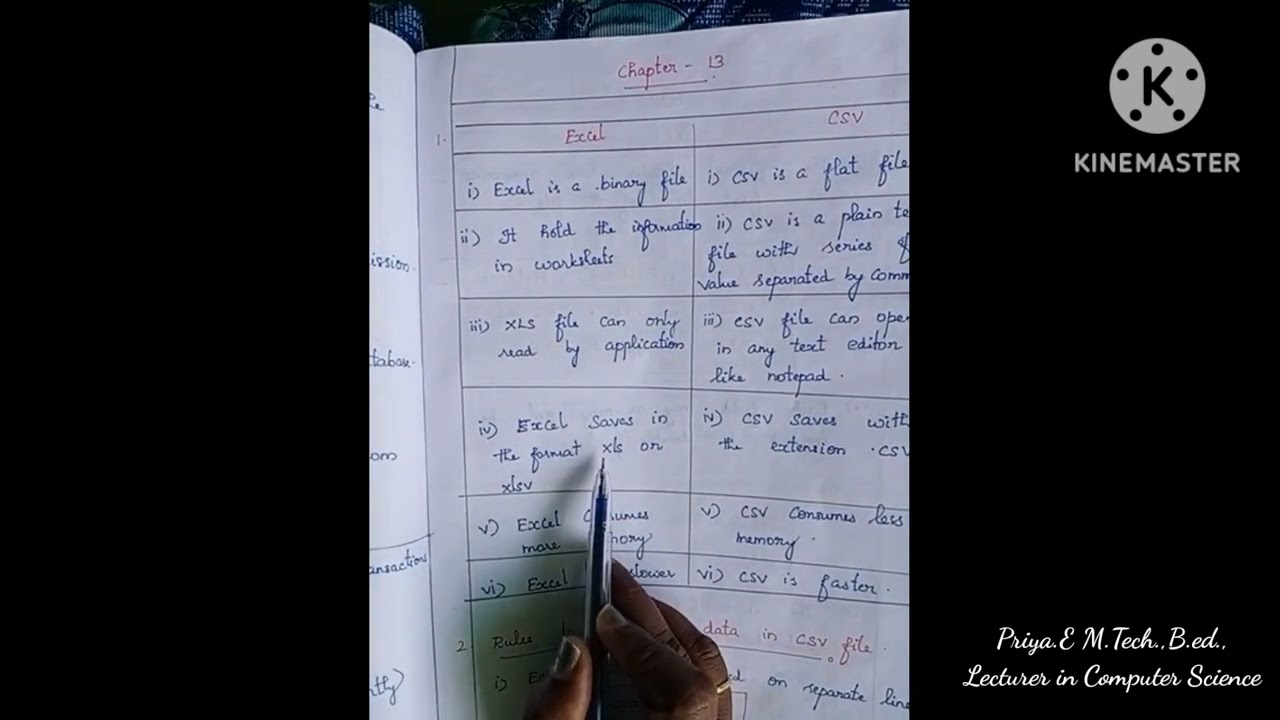 Chapter - 13
1.
Excel
CSV
i) Excel is a binary file
i) CSV is a flat file
ii) It hold the information
in worksheets
ii) CSV is a plain te
file with series of
value separated by comm
iii) XLS file can only
read by application
iii) CSV file can ope
in any text editor
like notepad.
iv) Excel Saves in
the format xls or
xlsv
iv) CSV saves with
the extension .csv
v) Excel
more
v) CSV Consumes less
memory.
vi) Excel slower
vi) CSV is faster.
2. Rules data in CSV file.
i)
on separate line
ission.
tabase.
om
ansaction
tly)
K
KINEMASTER
Priya.E M.Tech.,B.ed.,
Lecturer in Computer Science